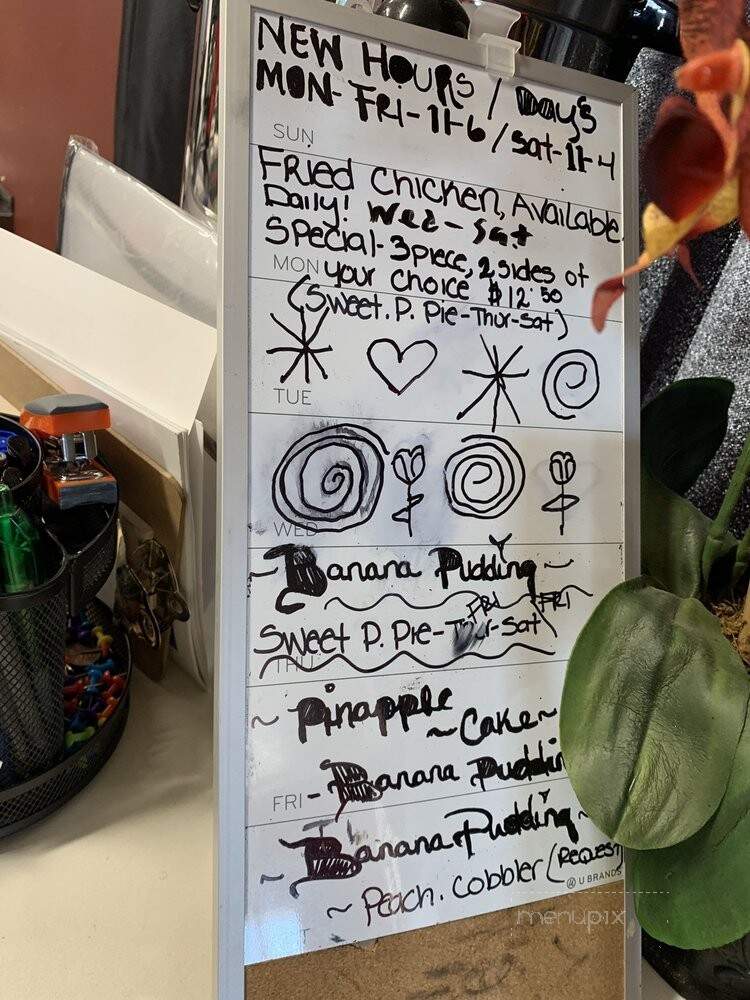 NEW HOURS / Days
MON-FRI-11-6/Sat-11-4
SUN
FRied Chicken, Available
Daily! Wed-Sat
Special-3piece, 2 sides of
MON your choice $12.50
(Sweet.P. Pie-Thur-Sat)
TUE
WED
~Banana Pudding~
FRI FRI
Sweet P. Pie-Thur-Sat
THU
~Pinapple
~Cake~
FRI -Banana Puddin
~Banana Pudding~
~Peach.Cobbler (REQUEST)
U BRANDS
menupix